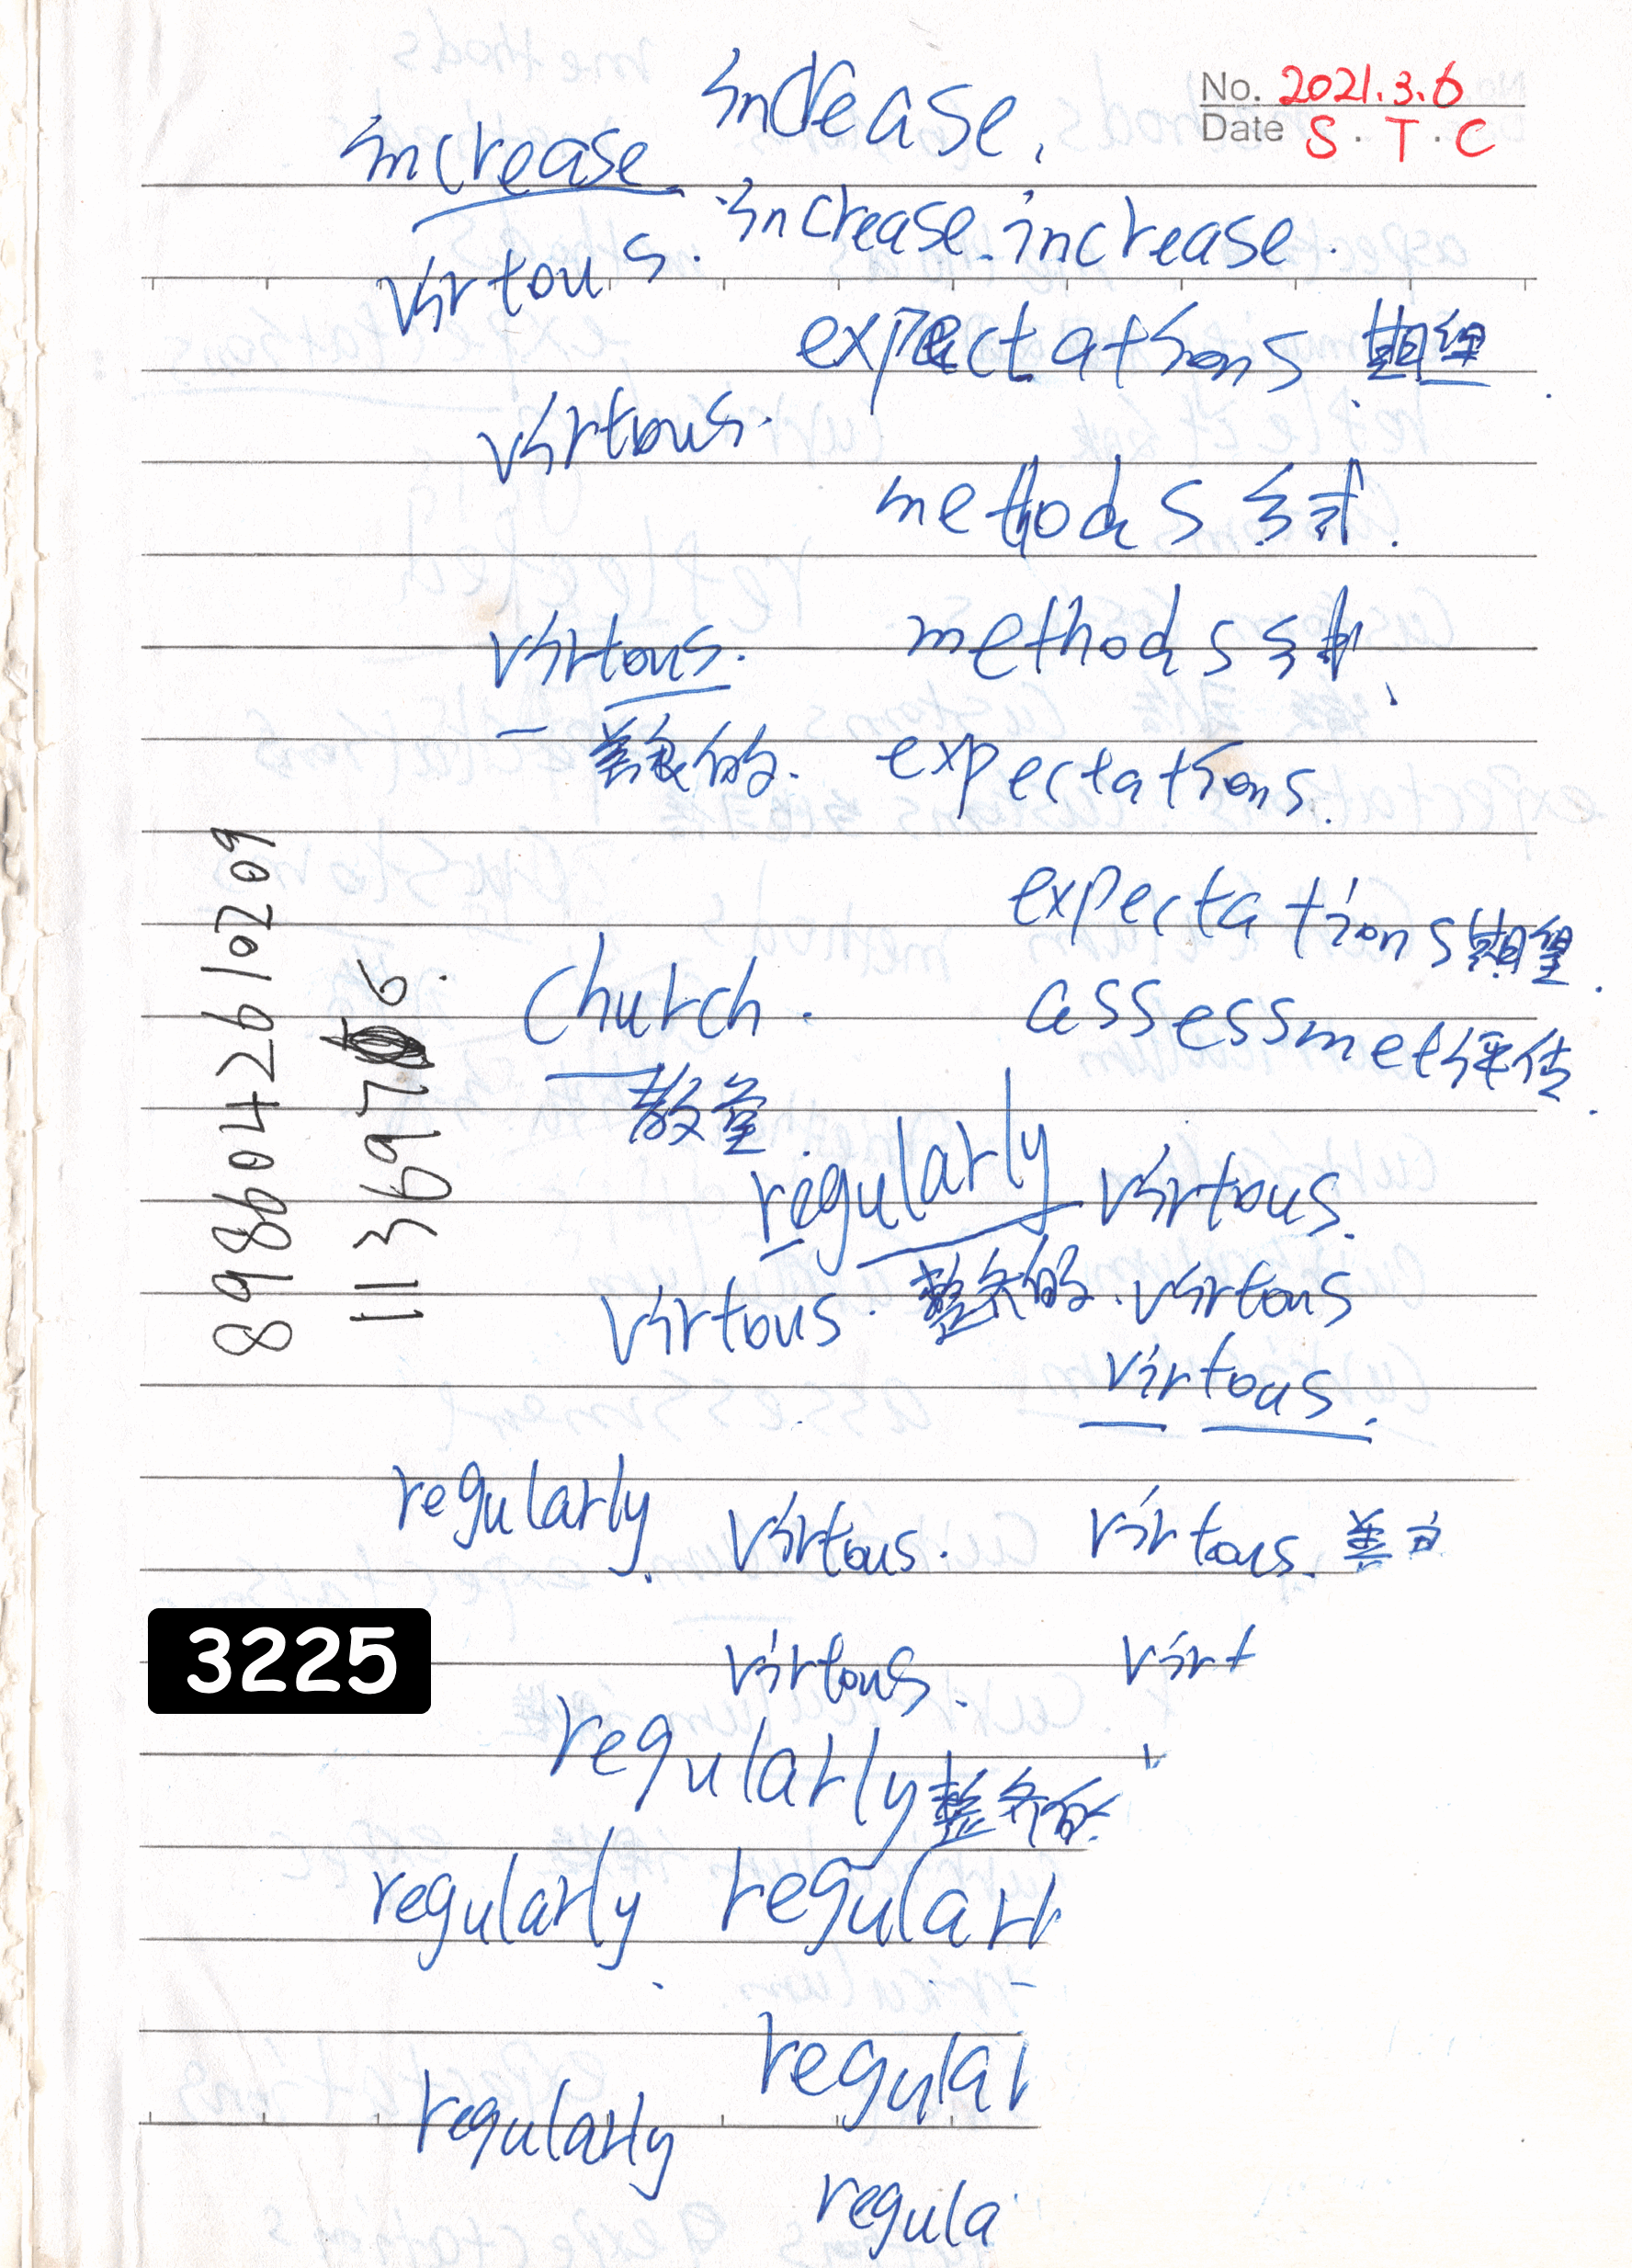 No. 2021.3.6
Date S.T.C
increase.
increase
increase. increase.
virtous.
expectations 期望.
virtous.
methods 方式.
virtous. methods 方式.
善良的. expectations.
expectations 期望.
church. assessmet 评估.
教堂
regularly virtous.
virtous. 整齐的. virtous
virtous.
regularly. virtous. virtous. 善良
virtous. virt
regularly 整齐的
regularly. regularl
regular
regularly
regula
8986042610209
11369766.
3225